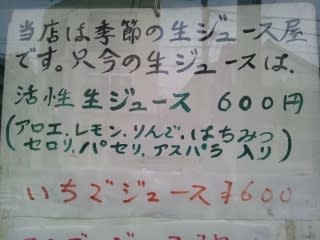 当店は季節の生ジュース屋
です。只今の生ジュースは、
活性生ジュース 600円
(アロエ.レモン.りんご.はちみつ
セロリ.パセリ.アスパラ 入り)
いちごジュース ¥600